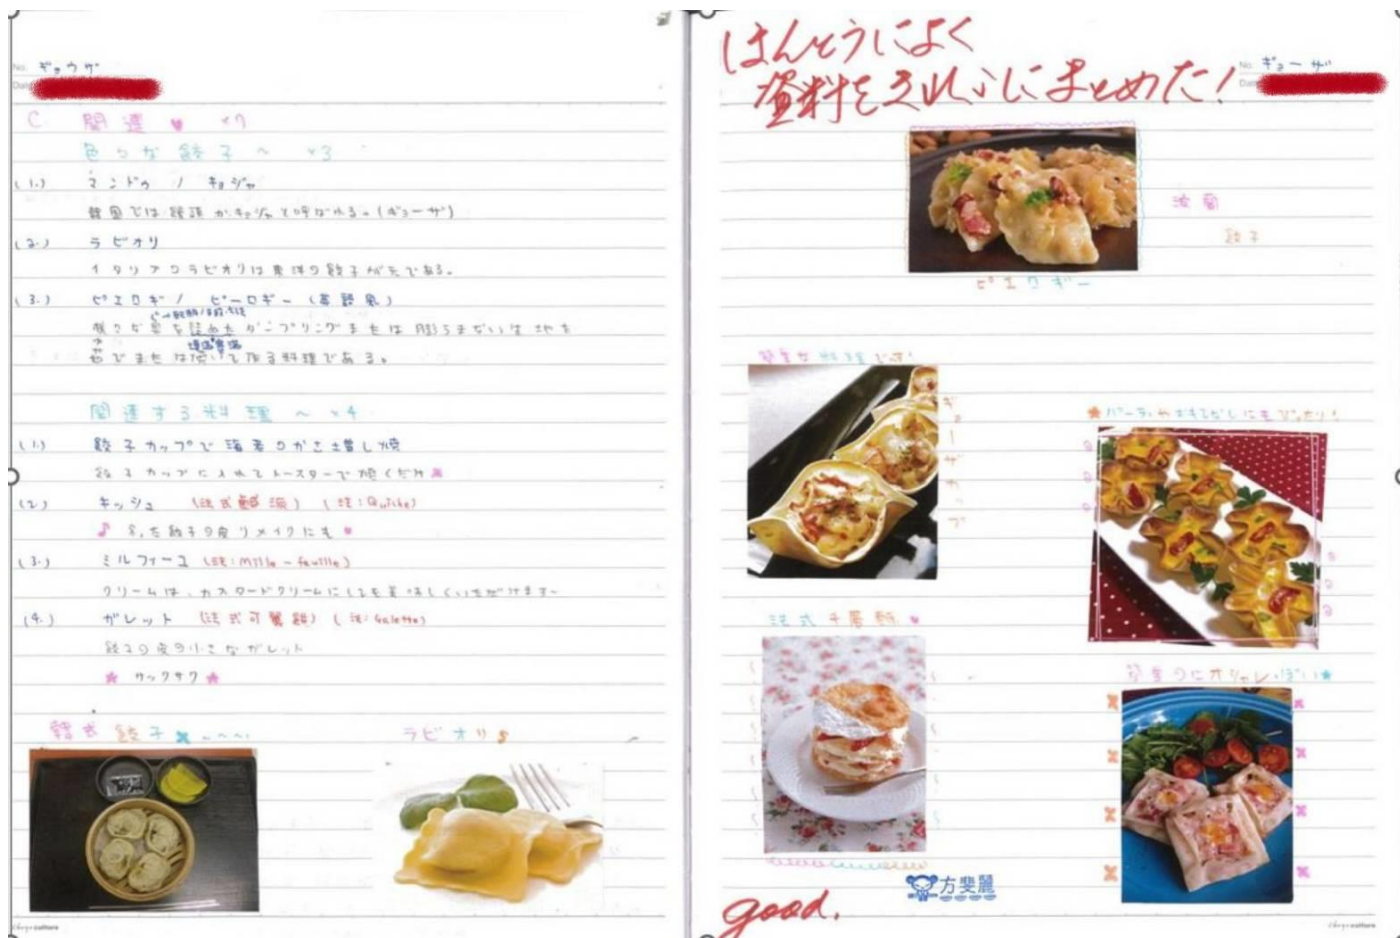 No. ギョウザ
C. 関連 ♥ ×7
色々な餃子～ ×3
(1.) マンドゥ / キョジャ
韓国では饅頭がキョジャと呼ばれる。(ギョーザ)
(2.) ラビオリ
イタリアのラビオリは東洋の餃子が元である。
(3.) ピエロギ / ピーロギー (英語風)
様々な具を詰めたダンプリングまたは膨らまない生地を
茹でまたは焼いて作る料理である。
関連する料理～ ×4
(1.) 餃子カップで海老のかさ増し焼
餃子カップに入れてトースターで焼くだけ
(2.) キッシュ (法式鹹派) (法:Quiche)
♪ 余った餃子の皮リメイクにも ♥
(3.) ミルフィーユ (法:Mille-feuille)
クリームは、カスタードクリームにしても美味しくいただけます~
(4.) ガレット (法式可麗餅) (法:Galette)
餃子の皮の小さなガレット
サックサク
韓式餃子
ラビオリ
はんとうによく
資料をきれいにまとめた!
No. ギョーザ
波蘭
餃子
ピエロギー
簡単な料理です!
ギョーザカップ
★パーティやおもてなしにもぴったり!
法式千層酥 ♥
簡単のにオシャレっぽい★
方斐麗
good.